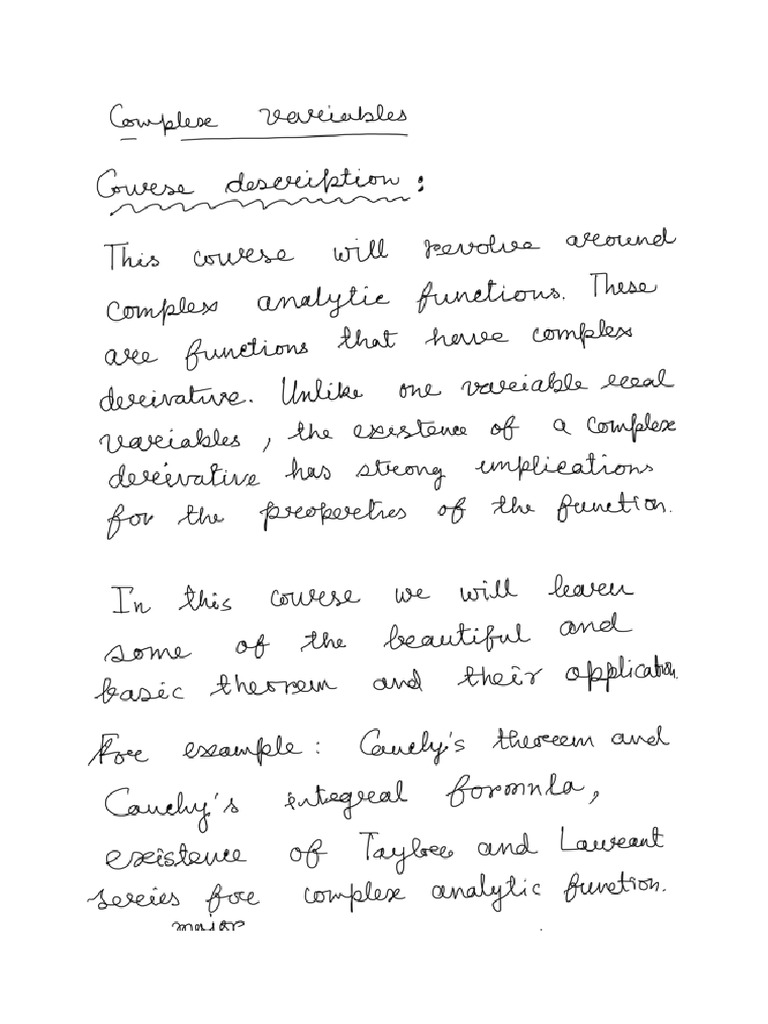 Complex variables
Course description:
This course will revolve around
complex analytic functions. These
are functions that have complex
derivative. Unlike one variable real
variables, the existence of a complex
derivative has strong implications
for the properties of the function.
In this course we will learn
some of the beautiful and
basic theorem and their application.
For example: Cauchy's theorem and
Cauchy's integral formula,
existence of Taylor and Laurant
series for complex analytic function.
major